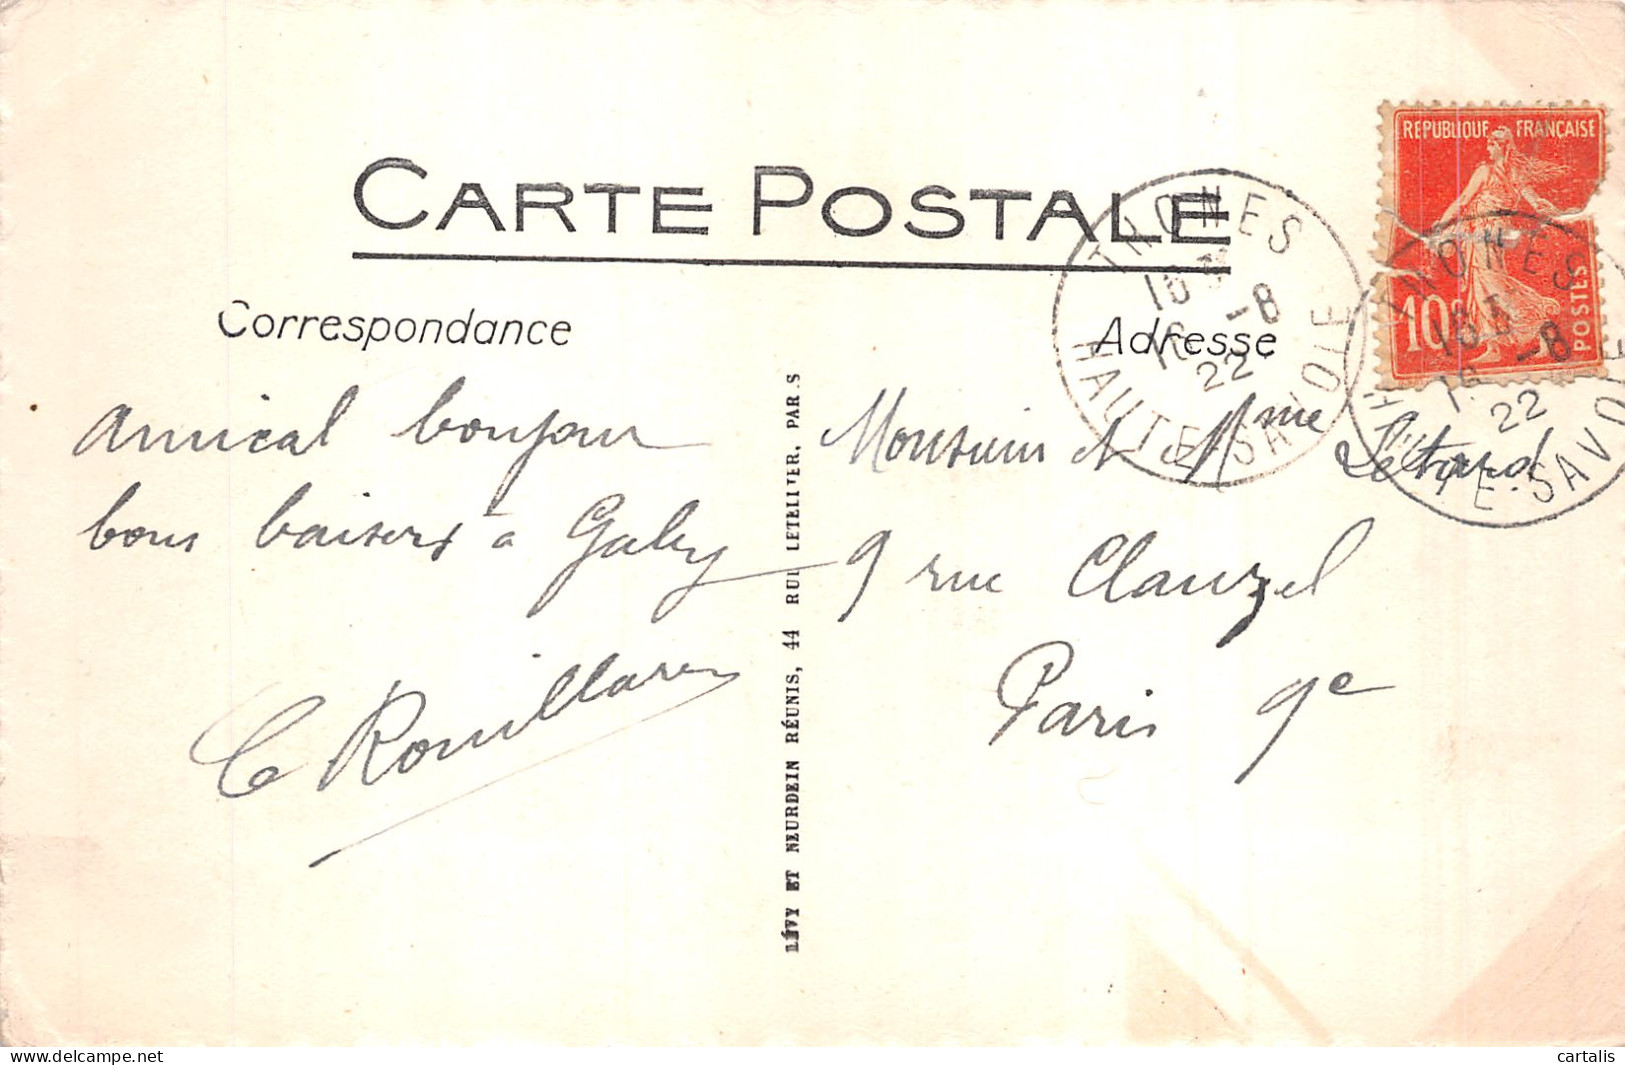 CARTE POSTALE
RÉPUBLIQUE FRANÇAISE
10c
POSTES
THÔNES
16
-8
22
HAUTE-SAVOIE
THÔNES
16
-8
22
HAUTE-SAVOIE
Correspondance
Adresse
Amical bonjour
bons baisers à Gaby
C Rouillard
LÉVY ET NEURDEIN RÉUNIS, 44 RUE LETELLIER, PARIS
Monsieur et Mme Létard
9 rue Clauzel
Paris 9e
www.delcampe.net
cartalis